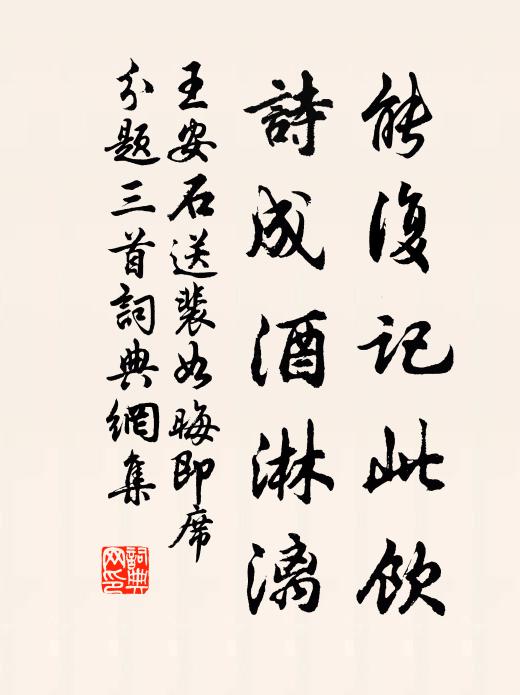 能復記此飲
詩成酒淋漓
王安石送裴如晦即席
分題三首詞典網集
詞典
网印